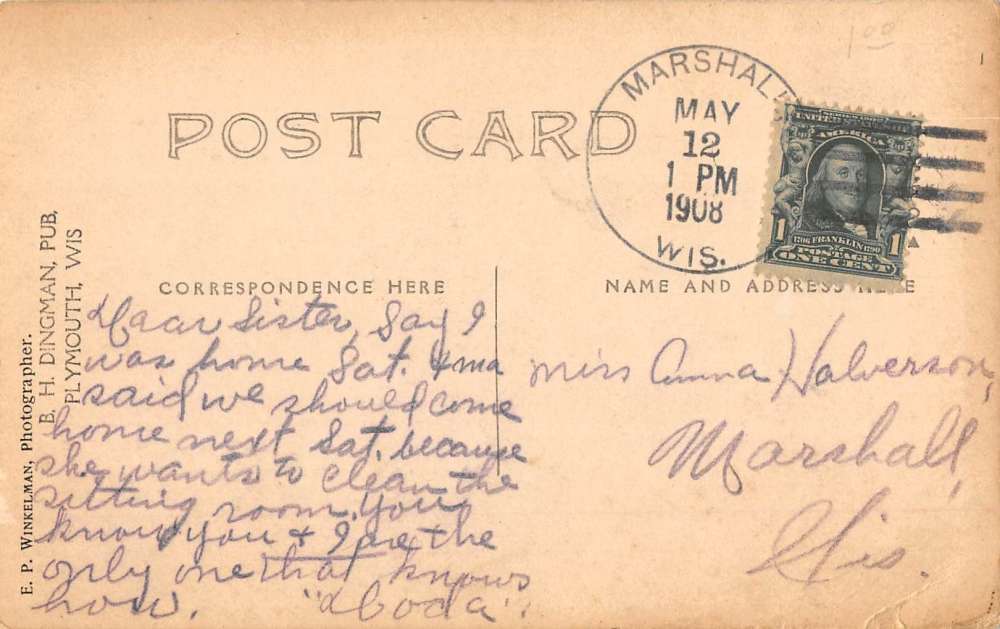 1 00
POST CARD
MARSHALL
MAY
12
1 PM
1908
WIS.
SERIES 1902
UNITED STATES OF
AMERICA
1706 FRANKLIN 1790
1 POSTAGE 1
ONE CENT
CORRESPONDENCE HERE
NAME AND ADDRESS HERE
E. P. WINKELMAN, Photographer.
E. H. DINGMAN, PUB,
PLYMOUTH, WIS
Daar Sister, Say I
was home Sat. & ma
said we should come
home next Sat. because
she wants to clean the
sitting room. You
know you & I are the
only one that knows
how.
Miss Anna Halverson,
Marshall,
Wis.